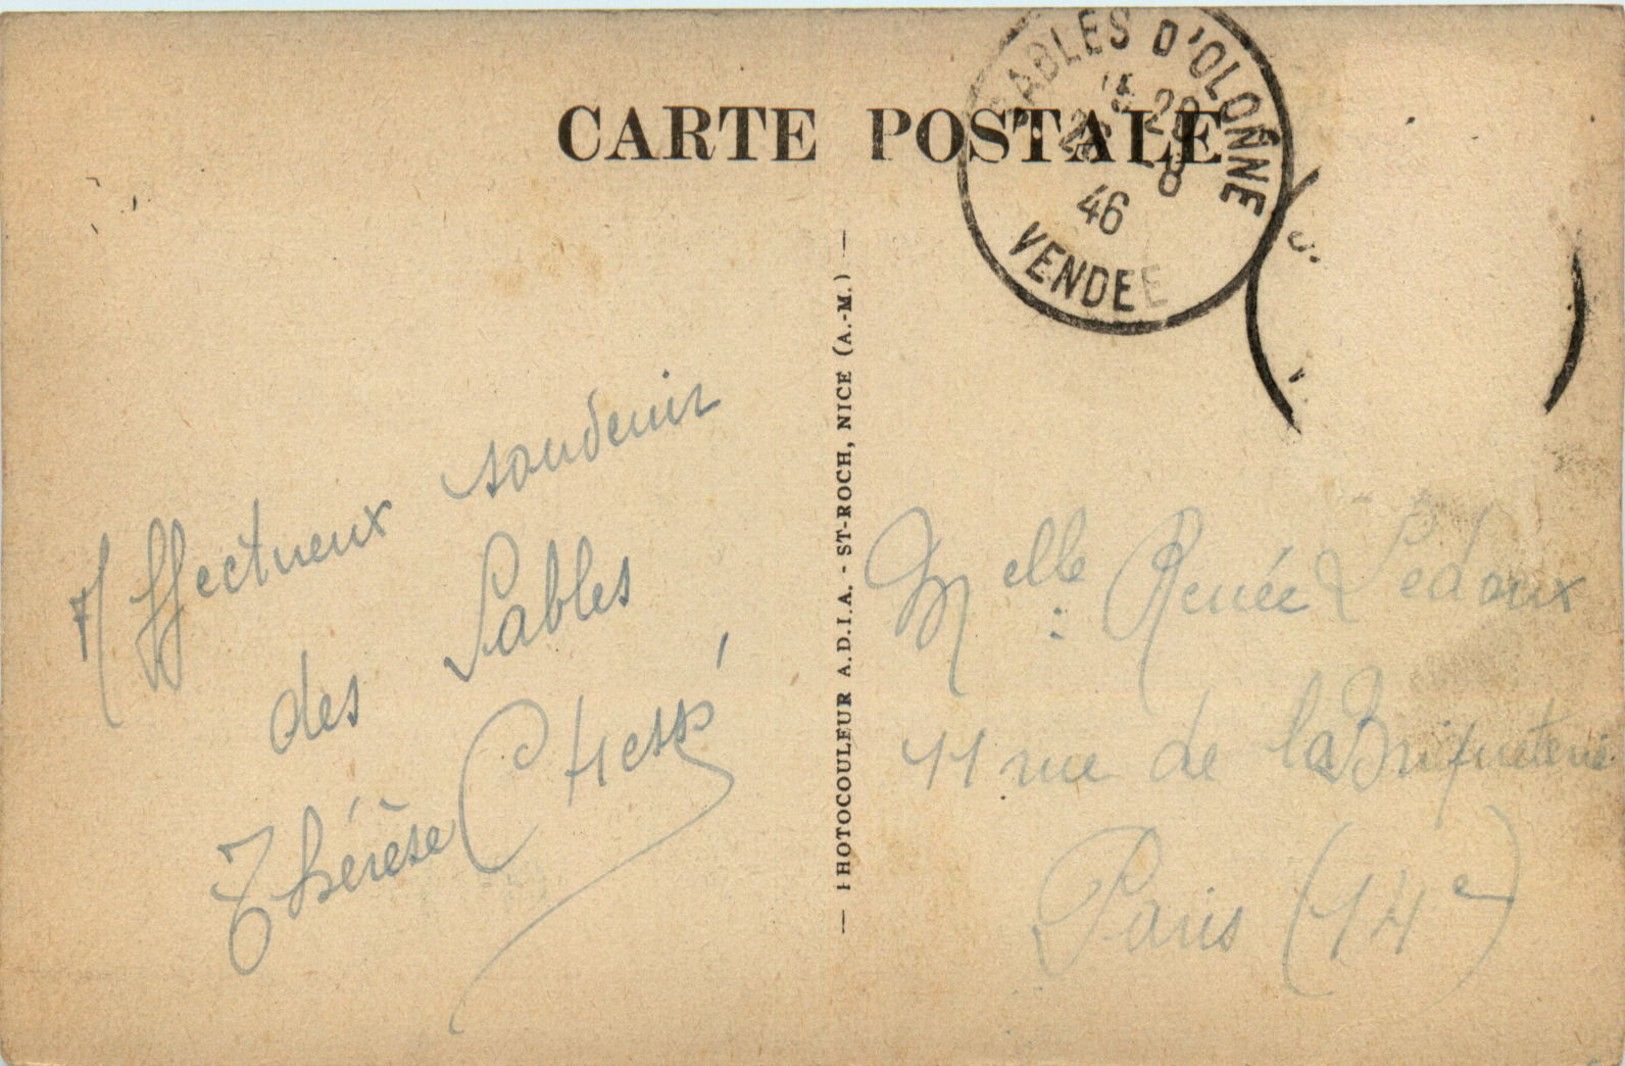 CARTE POSTALE
SABLES D'OLONNE
26 - 8
46
VENDEE
Affectueux souvenir
des Sables
Thérèse
— PHOTOCOULEUR A.D.I.A. - ST-ROCH, NICE (A.-M.) —
Melle Renée Ledoux
11 rue de la Briqueterie
Paris (14e)